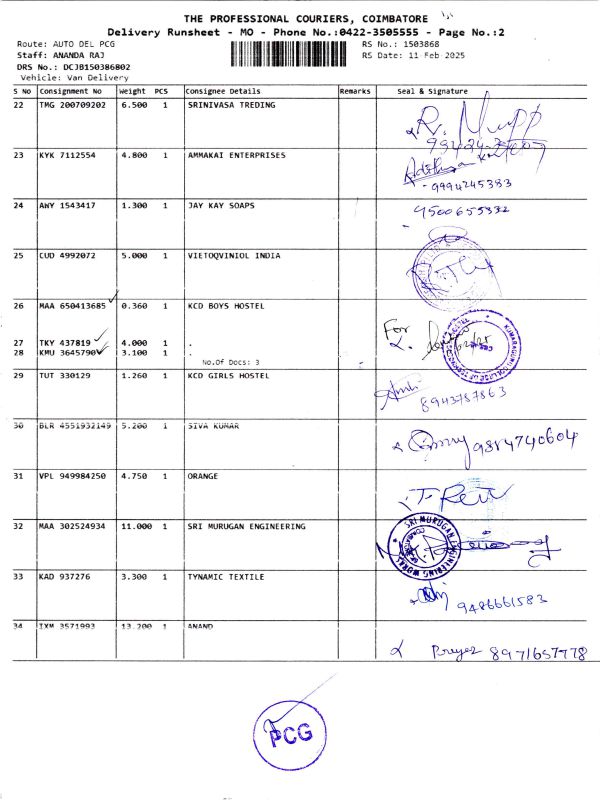 THE PROFESSIONAL COURIERS, COIMBATORE
Delivery Runsheet - MO - Phone No.:0422-3505555 - Page No.:2
Route: AUTO DEL PCG
RS No.: 1503868
Staff: ANANDA RAJ
RS Date: 11-Feb-2025
DRS No.: DCJB150386802
Vehicle: Van Delivery
S No Consignment No Weight PCS Consignee Details Remarks Seal & Signature
22 TMG 200709202 6.500 1 SRINIVASA TREDING
23 KYK 7112554 4.800 1 AMMAKAI ENTERPRISES
9994245383
24 AWY 1543417 1.300 1 JAY KAY SOAPS
9500655332
25 CUD 4992072 5.000 1 VIETOQVINIOL INDIA
26 MAA 650413685 0.360 1 KCD BOYS HOSTEL
For
27 TKY 437819 4.000 1 .
28 KMU 3645790 3.100 1 .
No.Of Docs: 3
29 TUT 330129 1.260 1 KCD GIRLS HOSTEL
8943787863
30 BLR 4551932149 5.200 1 SIVA KUMAR
9884740604
31 VPL 949984250 4.750 1 ORANGE
32 MAA 302524934 11.000 1 SRI MURUGAN ENGINEERING
SRI MURUGAN ENGINEERING WORKS
33 KAD 937276 3.300 1 TYNAMIC TEXTILE
9486661583
34 IXM 3571993 13.200 1 ANAND
8971657778
PCG